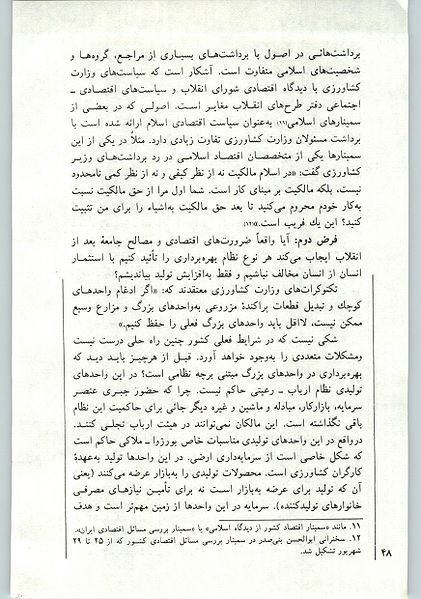 برداشت‌هائی در اصول با برداشت‌های بسیاری از مراجع، گروه‌ها و
شخصیت‌های اسلامی متفاوت است. آشکار است که سیاست‌های وزارت
کشاورزی با دیدگاه اقتصادی شورای انقلاب و سیاست‌های اقتصادی ـ
اجتماعی دفتر طرح‌های انقلاب مغایر است. اصولی که در بعضی از
سمینارهای اسلامی(۱۱) به‌عنوان سیاست اقتصادی اسلام ارائه شده است با
برداشت مسئولان وزارت کشاورزی تفاوت زیادی دارد. مثلاً در یکی از این
سمینارها یکی از متخصصان اقتصاد اسلامی در رد برداشت‌های وزیر
کشاورزی گفت: «در اسلام مالکیت نه از نظر کیفی و نه از نظر کمی نامحدود
نیست، بلکه مالکیت بر مبنای کار است. شما اول مرا از حق مالکیت نسبت
به‌کار خودم محروم می‌کنید تا بعد حق مالکیت به‌اشیاء را برای من تثبیت
کنید؟ این یك فریب است.»(۱۲)
فرض دوم: آیا واقعاً ضرورت‌های اقتصادی و مصالح جامعهٔ بعد از
انقلاب ایجاب می‌کند هر نوع نظام بهره‌برداری را تأئید کنیم با استثمار
انسان از انسان مخالف نباشیم و فقط به‌افزایش تولید بیاندیشیم؟
تکنوکرات‌های وزارت کشاورزی معتقدند که: «اگر ادغام واحدهای
کوچك و تبدیل قطعات پراکندهٔ مزروعی به‌واحدهای بزرگ و مزارع وسیع
ممکن نیست، لااقل باید واحدهای بزرگ فعلی را حفظ کنیم.»
شکی نیست که در شرایط فعلی کشور چنین راه حلی درست نیست
ومشکلات متعددی را به‌وجود خواهد آورد. قبل از هرچیز باید دید که
بهره‌برداری در واحدهای بزرگ مبتنی برچه نظامی است؟ در این واحدهای
تولیدی نظام ارباب ـ رعیتی حاکم نیست. چرا که حضور جبری عنصر
سرمایه، بازارکار، مبادله و ماشین و غیره دیگر جائی برای حاکمیت این نظام
باقی نگذاشته است. این مالکان نمی‌توانند در هیئت ارباب تجلی کنند.
درواقع در این واحدهای تولیدی مناسبات خاص بورژوا ـ ملاکی حاکم است
که شکل خاصی است از سرمایه‌داری ارضی. در این واحدها تولید به‌عهدهٔ
کارگران کشاورزی است. محصولات تولیدی را به‌بازار عرضه می‌کنند (یعنی
آن که تولید برای عرضه به‌بازار است نه برای تأمین نیازهای مصرفی
خانوارهای تولیدکننده). سرمایه در این واحدها از زمین مهم‌تر است و هدف
۱۱. مانند «سمینار اقتصاد کشور از دیدگاه اسلامی» یا «سمینار بررسی مسائل اقتصادی ایران».
۱۲. سخنرانی ابوالحسن بنی‌صدر در سمینار بررسی مسائل اقتصادی کشور که از ۲۵ تا ۲۹
شهریور تشکیل شد.
۴۸